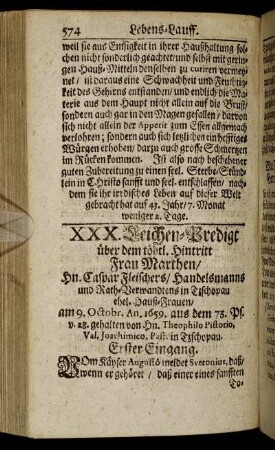 574 Lebens-Lauff.
weil sie aus Emsigkeit in ihrer Haußhaltung sol-
chen nicht sonderlich geachtet und selbst mit gerin-
gen Hauß-Mitteln denselben zu curiren vermey-
net / ist daraus eine Schwachheit und Feuchtig-
keit des Gehirns entstanden / und endlich die Ma-
terie aus dem Haupt nicht allein auf die Brust /
sondern auch gar in den Magen gefallen / davon
sich nicht allein der Appetit zum Essen allgemach
verlohren; sondern auch sich letzlichen ein hefftiges
Würgen erhoben / darzu auch grosse Schmertzen
im Rücken kommen. Ist also nach beschehener
guter Zubereitung zu einen seel. Sterbe-Stünd-
lein in C. hristo sanfft und seel. entschlaffen / nach-
dem sie ihr irrdisches Leben auf dieser Welt
gebracht hat auf 45. Jahr / 7. Monat
weniger 2. Tage.
XXX. Leichen-Predigt
über dem tödtl. Hintritt
Frau Marthen /
Hn. Caspar Fleischers / Handelsmanns
und Raths-Verwandtens in Tschopau
ehel. Hauß-Frauen /
am 9. Octobr. An. 1659. aus dem 73. Ps.
v. 28. gehalten von Hn. Theophilo Pistorio,
Val. Joachimico, Past. in Tschopau.
Erster Eingang.
VOm Käyser Augusto meldet Svetonius, daß /
wenn er gehöret / daß einer eines sanfften
To-